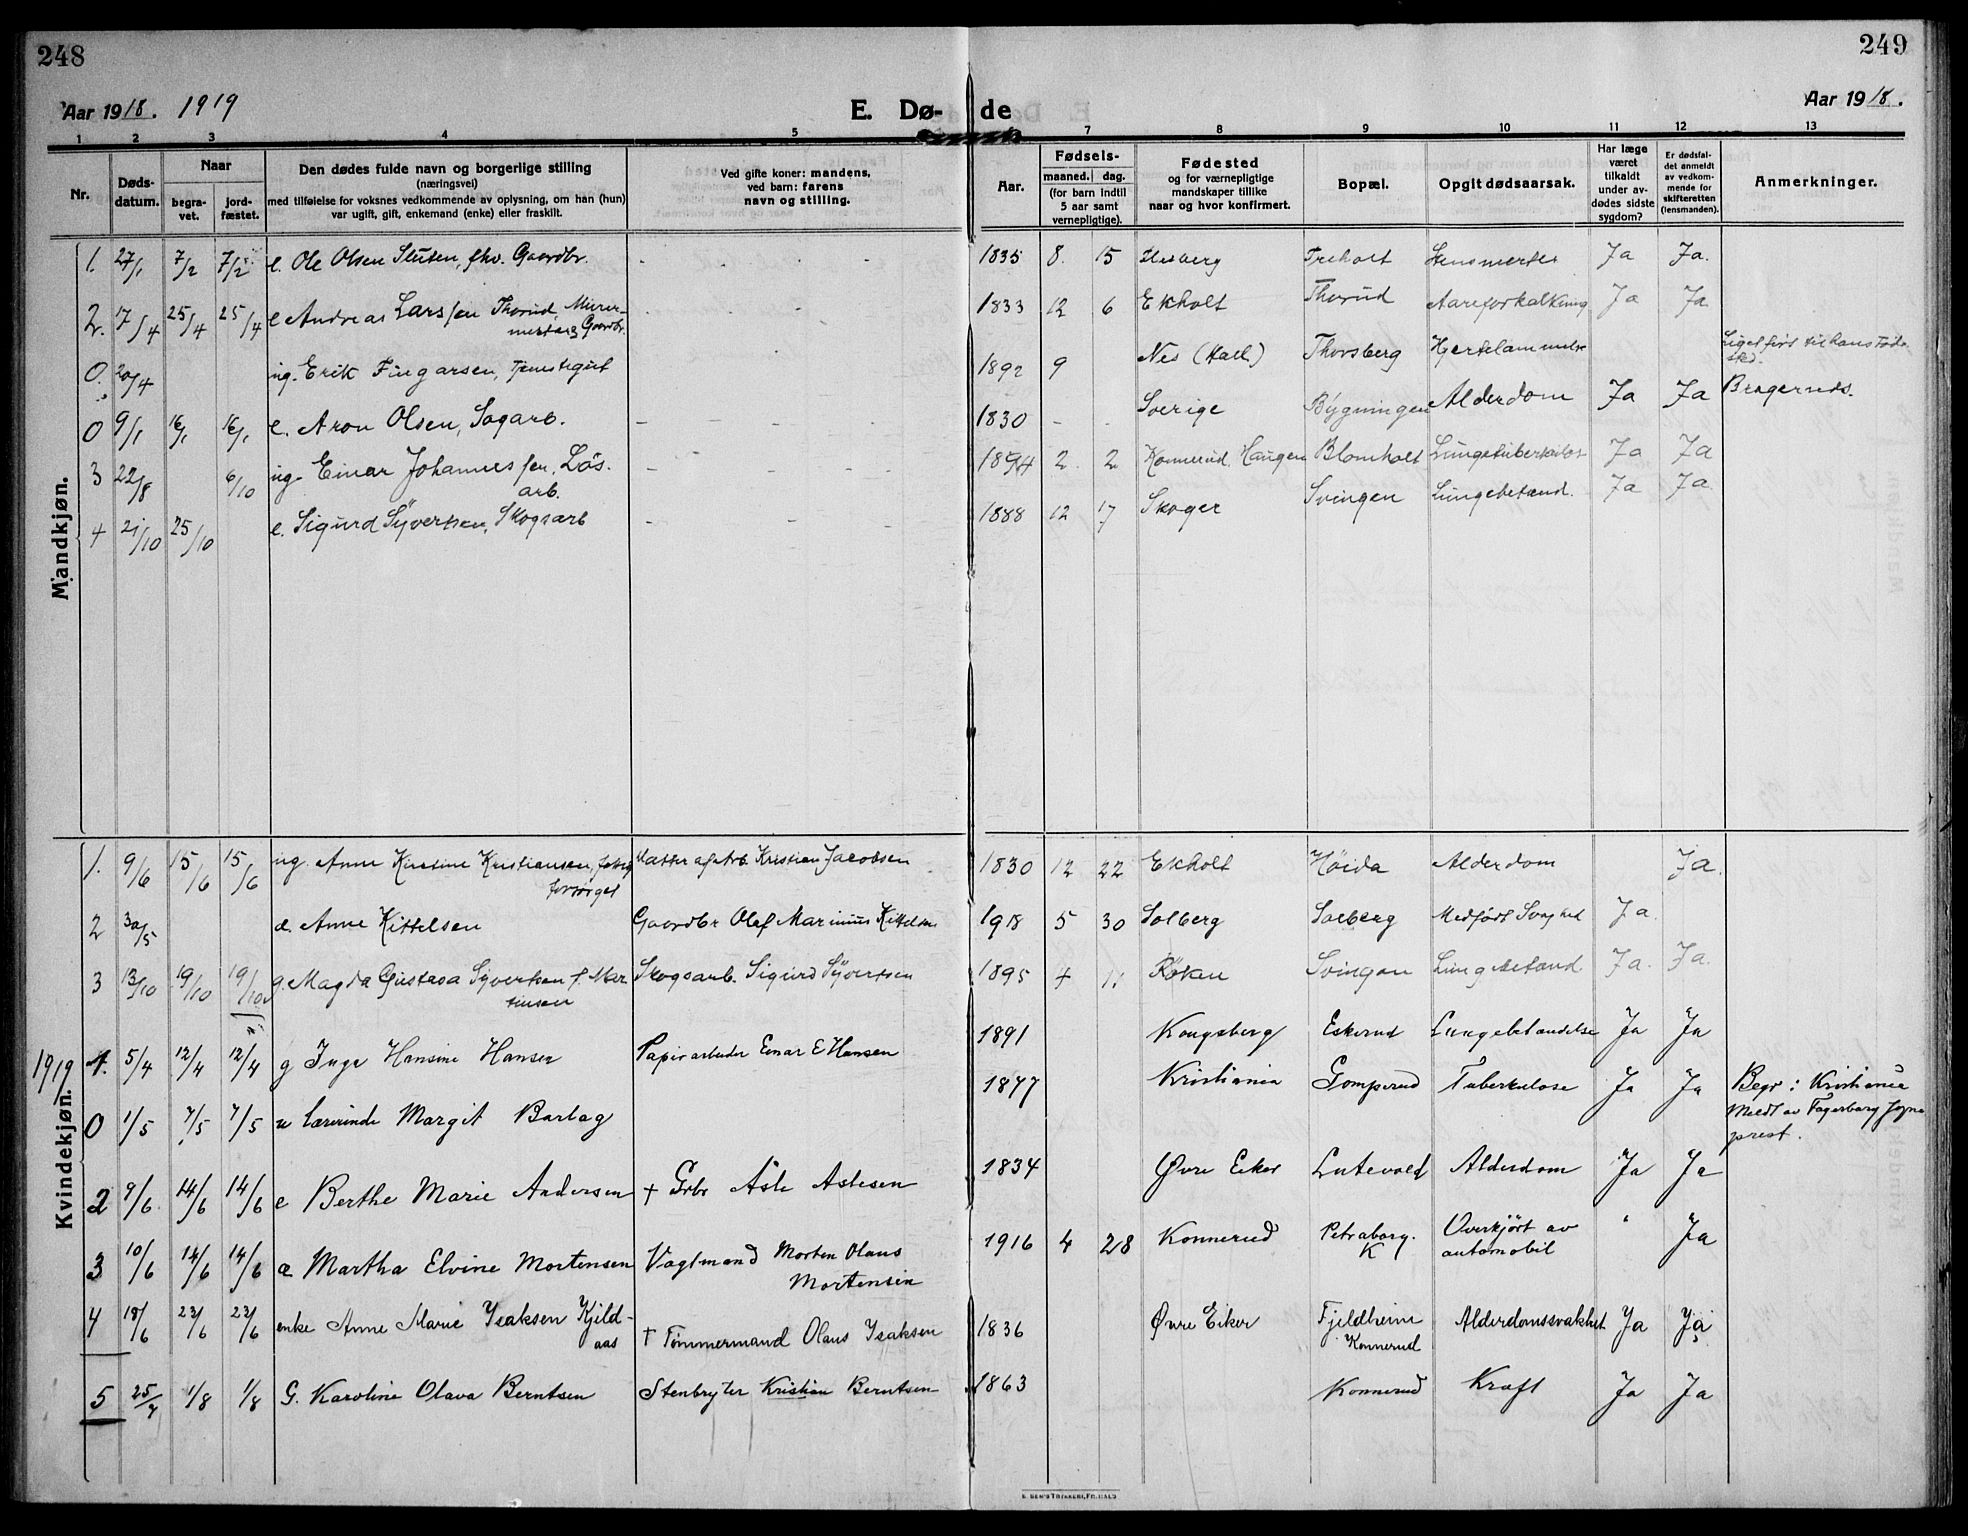 248
249
Aar 1918. 1919
E. Dø-
de
Aar 1918.
1 2 3 4 5 7 8 9 10 11 12 13
Nr.
Døds-
datum.
Naar
begra-
vet.
jord-
fæstet.
Den dødes fulde navn og borgerlige stilling
(næringsvei)
med tilføielse for voksnes vedkommende av oplysning, om han (hun)
var ugift, gift, enkemand (enke) eller fraskilt.
Ved gifte koner: mandens,
ved barn: farens
navn og stilling.
Aar.
Fødsels-
maaned. dag.
(for barn indtil
5 aar samt
vernepligtige).
Fødested
og for værnepligtige
mandskaper tillike
naar og hvor konfirmert.
Bopæl.
Opgit dødsaarsak.
Har læge
været
tilkaldt
under av-
dødes sidste
sygdom?
Er dødsfal-
det anmeldt
av vedkom-
mende for
skifteretten
(lensmanden).
Anmerkninger.
Mandkjøn.
1. 27/1 7/2 7/2 e. Ole Olsen fhv. Gaardbr. 1835 8. 15 Treholt Ja Ja.
2. 17/4 25/4 25/4 e Andreas Larssen Thorud, Murer-
mester, Gaardbr. 1833 12 6 Ekholt Thorud Aareforkalkning Ja Ja
0. 20/4 ug. Erik Fingarsen, Tjenestegut 1892 9 Nes (Hall.) Thorsberg Hjertelammelse Liget ført til hans Føde-
sted.
0 9/1 16/1 16/1 e. Aron Olsen, Sagarb. - 1830 - Sverige Bygningen Alderdom Ja Ja Bragernes.
3 22/8 6/10 ug. Einar Johannessen, Løs.
arb. 1894 2. 2 Konnerud, Haugen Blomholt Lungetuberkulos Ja Ja
4 21/10 25/10 e. Sigurd Syvertsen, Skogsarb - 1888 12 17 Skoger Svingen Lungebetænd. Ja Ja.
Kvindekjøn.
1. 9/6 15/6 15/6 ug. Anne Kirstine Kristiansen, fattig
forsørget Datter af Arb. Kristian Jacobsen 1830 12 22 Ekholt Høida Alderdom Ja.
2 30/5 d. Anne Kittelsen Gaardbr Olef Marinius Kittelsen 1918 5 30 Solberg Solberg Medfødt Svaghed Ja.
3 13/10 19/10 19/10 g. Magda Gustava Syvertsen f. Mar-
tinsen Skogsarb. Sigurd Syvertsen 1895 4 11 Røken Svingen Lungebetænd. Ja. Ja.
1919
1. 5/4 12/4 12/4 g Inga Hansine Hansen Papirarbeider Einar E Hansen 1891 Kongsberg Eskerud Lungebetændelse Ja Ja
0 1/5 7/5 7/5 u Lærerinde Margit Barlag 1877 Kristiania Gomperud Tuberkulose Ja Ja Begr: Kristiania
Meldt av Fagerborg Sogne
prest.
2 9/6 14/6 14/6 e Berthe Marie Andersen + Grbr Asle Aslesen 1834 Øvre Eiker Lutevold Alderdom Ja Ja
3 10/6 14/6 14/6 d Martha Elvine Mortensen Vagtmand Morten Olaus
Mortensen 1916 4 28 Konnerud Petraborg.
K Overkjørt av
automobil " Ja
4 18/6 23/6 23/6 enke Anne Marie Isaksen Kjeld-
aas + Tømmermand Olaus Isaksen 1836 Øvre Eiker Fjeldheim
Konnerud Alderdomssvakhet Ja Ja
5 25/7 1/8 1/8 G. Karoline Olava Berntsen Stenbryter Kristian Berntsen 1863 Konnerud Kræft Ja Ja